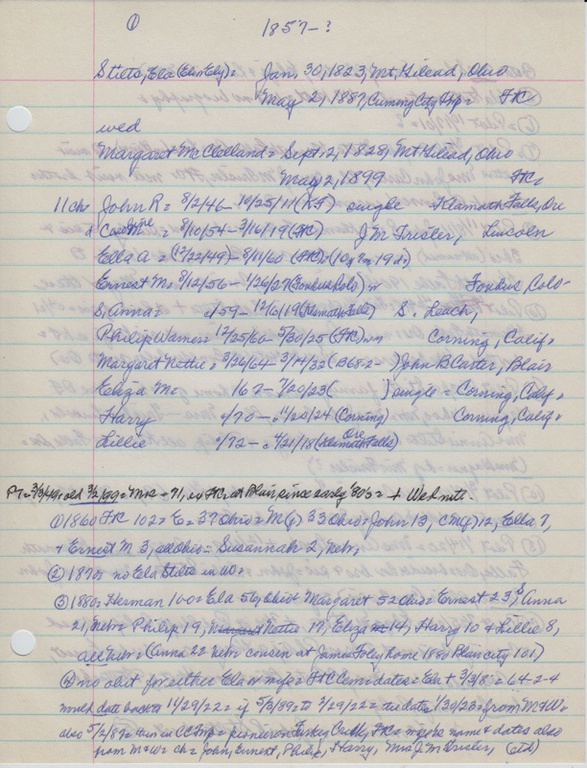 ①
1857-?
Stilts, Ela (Elim Ely) = Jan, 30, 1823, Mt, Gilead, Ohio
May 2, 1887, Cuming City Twp = FtC
wed
Margaret McClelland = Sept. 2, 1828, Mt Gilead, Ohio
May 2, 1899 FtC,
11 chs John R = 8/2/46 - 10/25/11 (KF) single Klamath Falls, Ore
Caroline M = 8/10/54 - 3/16/19 (FtC) J M Lincoln
Ella A = (12/22/49) - 8/11/60 (FtC) = (10y 7m 19d)
Ernest M = 8/12/56 - 1/26/27 (Colo)
S, Anna = c/59 - 12/6/19 (Klamath Falls) S. Leach,
Philip Warner = 12/25/60 - 5/30/25 (FtC) Corning, Calif =
Margaret Nettie = 3/26/64 - 3/14/32 (B68-2- ) John B Carter, Blair
Eliza M = 16 ? - 7/20/23 ( ) single = Corning, Calif =
Harry c/70 - 4/20/24 (Corning) Corning, Calif =
Lillie c/72 - 4/21/18 (Klamath Falls Ore)
PT = 3/3/99 = old 3/2/99 = Mrs - 71, in FtC at Blair since early '80's = + Web mite.
① 1860 FtC 102 = E = 37 Ohio = M(y) 33 Ohio = John 13, C M(y) 12, Ella 7,
+ Ernest M 3, all Ohio = Susannah 2, Nebr,
② 1870 = no Ela Stilts in WO =
③ 1880 = Herman 160 = Ela 56, Ohio = Margaret 52 Ohio = Ernest 23, S, Anna
21, Nebr = Philip 19, Nettie 17, Eliza 14, Harry 10 + Lillie 8,
all Nebr = (Anna 22 Nebr cousin at James Foley home 1880 Blair city 101)
④ no obit for either Ela or = FtC Cem dates = Ela + 3/3/8 = 64-2-4
date back to 1/29/22 = if 5/3/87 = to 2/29/22 = 1/30/23 = from M+W =
also 5/2/87 = then in CC Twp = pioneer on Turkey Creek, FtC = maybe name + dates also
from M + W = ch = John, Ernest, Philip, Harry, Mrs J M (etd)